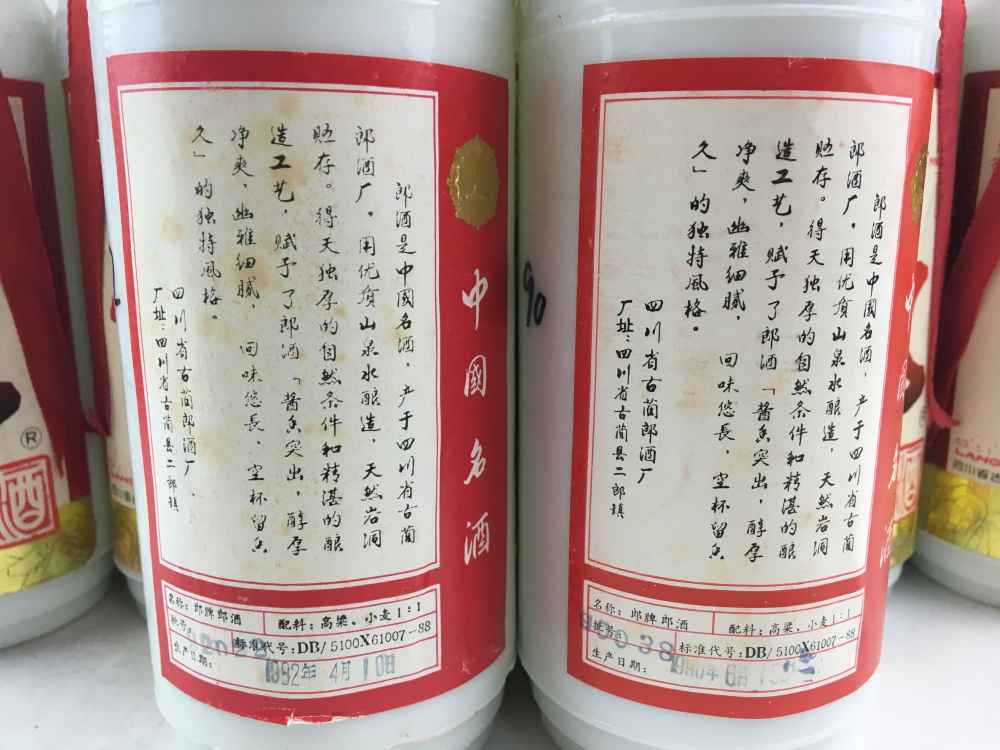 郎酒是中國名酒，产于四川省古蔺
郎酒厂。用优质山泉水酿造，天然岩洞
贮存。得天独厚的自然条件和精湛的酿
造工艺，赋予了郎酒「酱香突出，醇厚
净爽，幽雅细腻，回味悠長，空杯留香
久」的独特风格。
四川省古蔺郎酒厂
厂址：四川省古蔺县二郎镇
中國名酒
名称：郎牌郎酒
配料：高粱、小麦1：1
批号：
标准代号：DB/5100X61007-88
生产日期：
1992年 4月10日
90
郎酒是中國名酒，产于四川省古蔺
郎酒厂，用优质山泉水酿造，天然岩洞
贮存。得天独厚的自然条件和精湛的酿
造工艺，赋予了郎酒「酱香突出，醇厚
净爽，幽雅细腻，回味悠長，空杯留香
久」的独特风格。
四川省古蔺郎酒厂
厂址：四川省古蔺县二郎镇
中國名酒
名称：郎牌郎酒
配料：高粱、小麦1：1
批号：
标准代号：DB/5100X61007-88
生产日期：
®
酒
LANG
四川省古